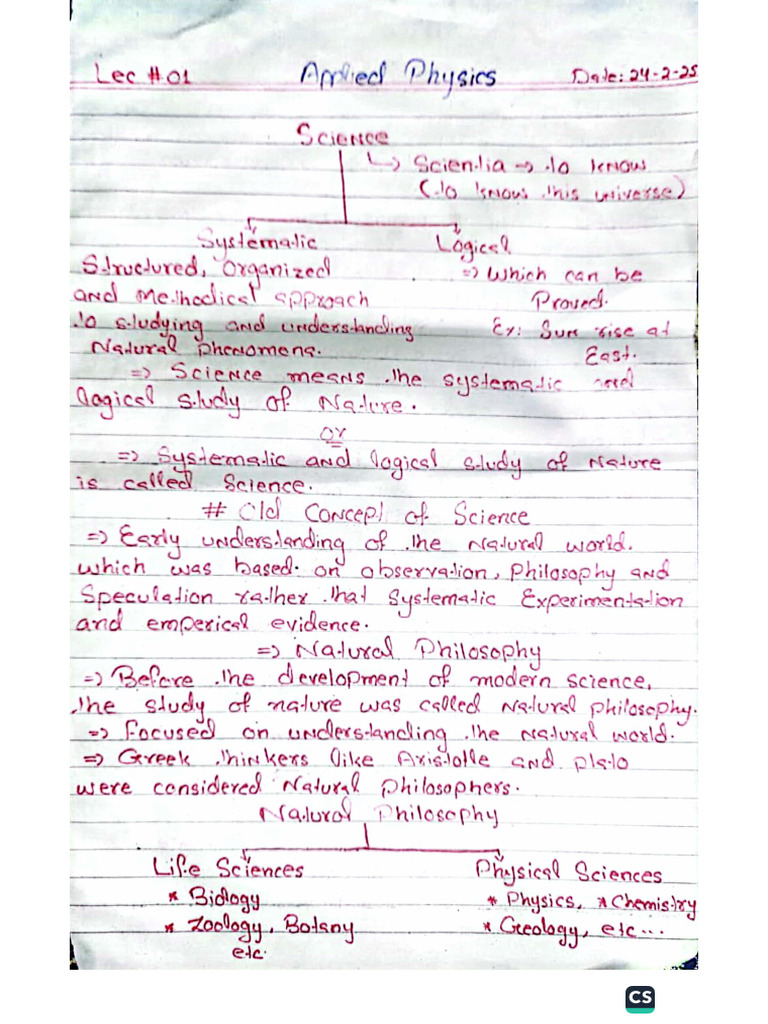 Lec #01 Applied Physics Date: 24-2-25
Science
↳ Scientia → to know
(to know this universe)
Systematic Logical
Structured, Organized ⇒ which can be
and Methodical approach Proved.
to studying and understanding Ex: Sun rise at
Natural Phenomena. East.
⇒ Science means the systematic and
logical study of Nature.
or
⇒ Systematic and logical study of Nature
is called Science.
# Old Concept of Science
⇒ Early understanding of the Natural world.
which was based on observation, Philosophy and
Speculation rather that Systematic Experimentation
and emperical evidence.
⇒ Natural Philosophy
⇒ Before the development of modern science,
the study of nature was called Natural philosophy.
⇒ Focused on understanding the Natural world.
⇒ Greek thinkers like Aristotle and plato
were considered Natural Philosophers.
Natural Philosophy
Life Sciences Physical Sciences
* Biology * Physics, * Chemistry
* Zoology, Botany * Geology, etc...
etc.
CS